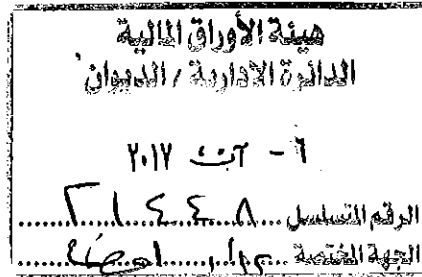 هيئة الأوراق المالية
الدائرة الادارية / الديوان
٦ - آب ٢٠١٧
الرقم المتسلسل ٢١٤٤٨
الجهة المختصة